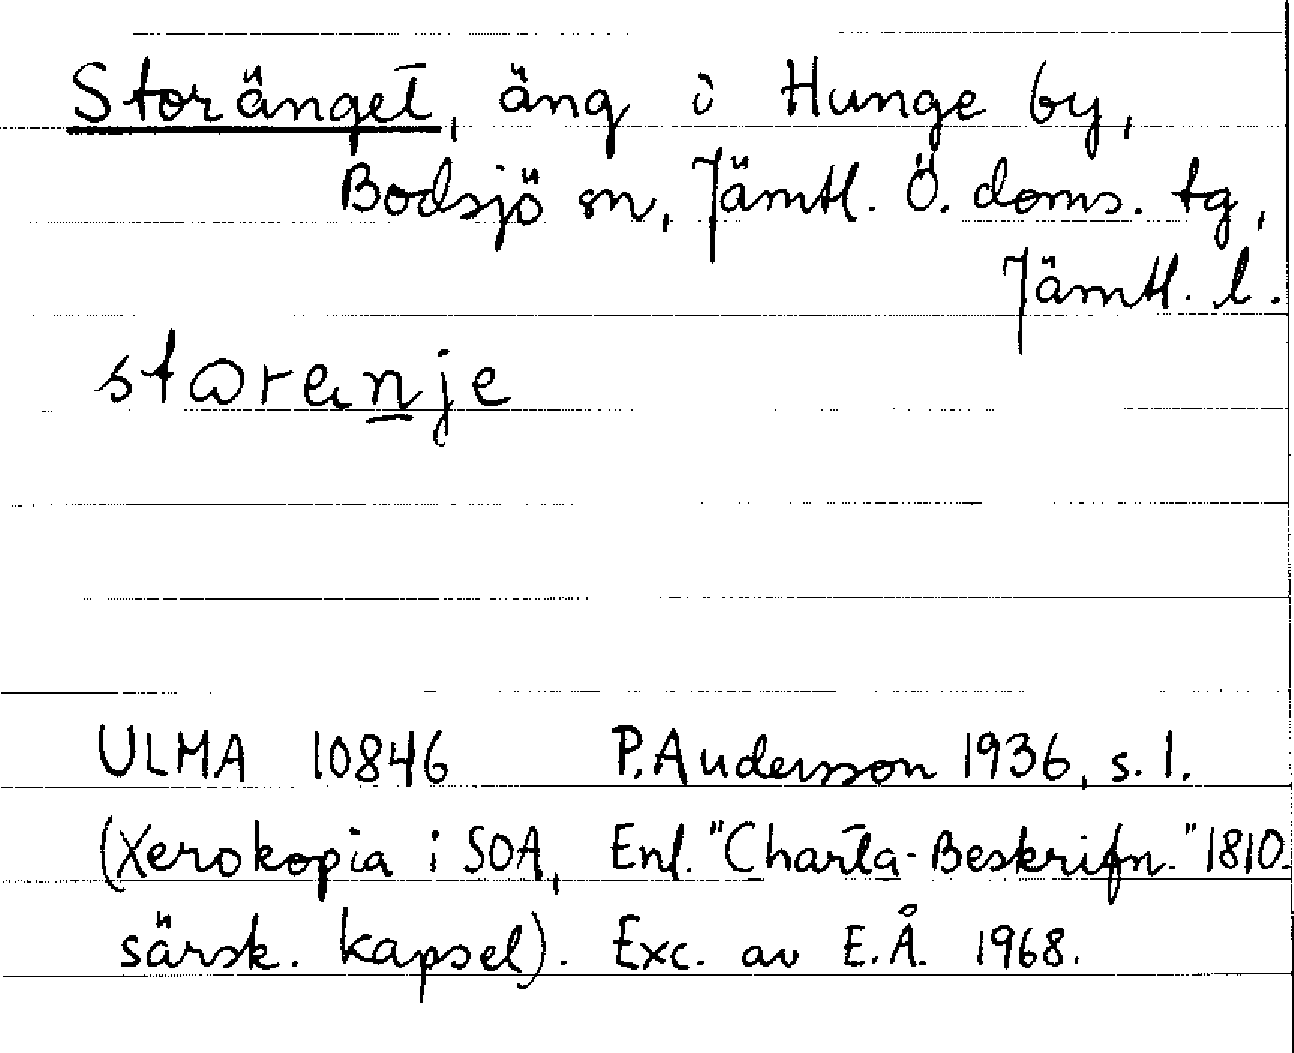 Storänget, äng i Hunge by,
Bodsjö sn, Jämtl. Ö. doms. tg,
Jämtl. l.
ULMA 10846 P. Andersson 1936, s. 1.
(Xerokopia i SOA, Enl. "Charta-Beskrifn." 1810.
särsk. kapsel). Exc. av E.Å. 1968.